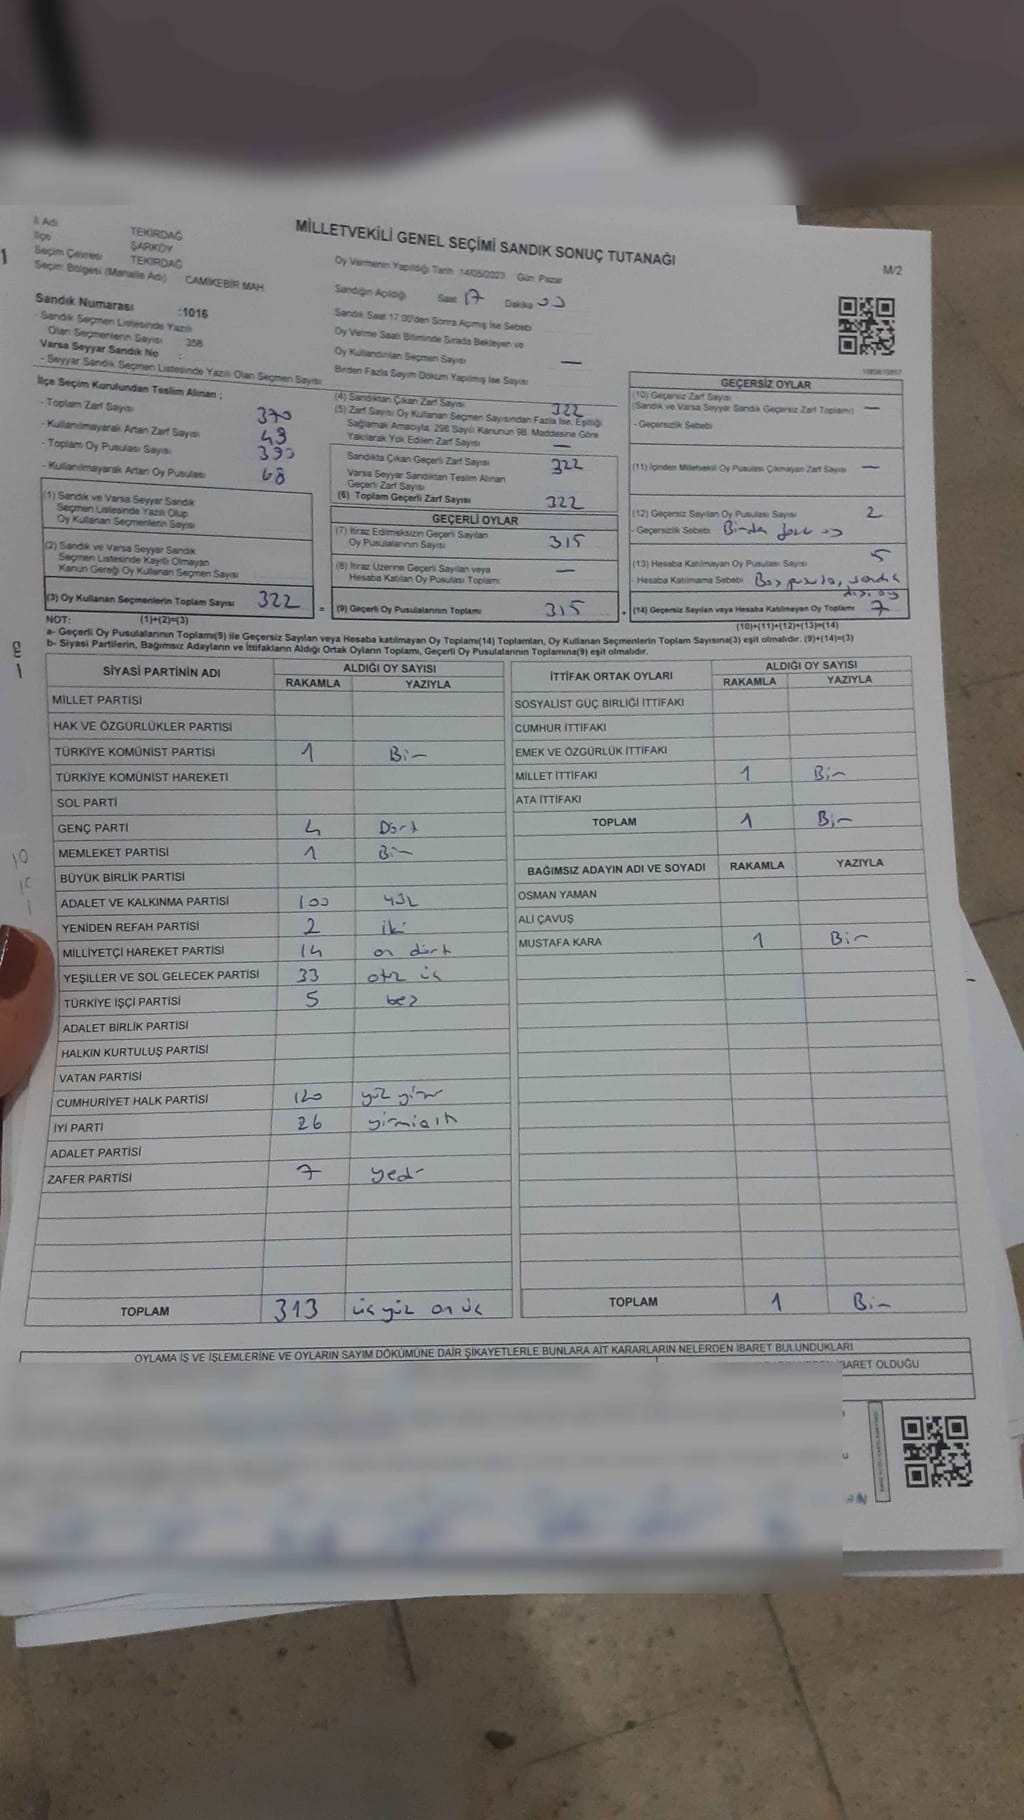 MİLLETVEKİLİ GENEL SEÇİMİ SANDIK SONUÇ TUTANAĞI
M/2
İl Adı TEKİRDAĞ
İlçe ŞARKÖY
Seçim Çevresi TEKİRDAĞ
Seçim Bölgesi (Mahalle Adı) CAMİKEBİR MAH.
Sandık Numarası :1016
- Sandık Seçmen Listesinde Yazılı
Olan Seçmenlerin Sayısı 358
Varsa Seyyar Sandık No :
- Seyyar Sandık Seçmen Listesinde Yazılı Olan Seçmen Sayısı
Oy Vermenin Yapıldığı Tarih 14/05/2023 Gün: Pazar
Sandığın Açıldığı Saat 17 Dakika 00
Sandık Saat 17.00'den Sonra Açılmış İse Sebebi
Oy Verme Saati Bitiminde Sırada Bekleyen ve
Oy Kullandırılan Seçmen Sayısı —
Birden Fazla Sayım Döküm Yapılmış İse Sayısı
İlçe Seçim Kurulundan Teslim Alınan ;
- Toplam Zarf Sayısı 370
- Kullanılmayarak Artan Zarf Sayısı
- Toplam Oy Pusulası Sayısı 390
- Kullanılmayarak Artan Oy Pusulası 68
(1) Sandık ve Varsa Seyyar Sandık
Seçmen Listesinde Yazılı Olup
Oy Kullanan Seçmenlerin Sayısı
(2) Sandık ve Varsa Seyyar Sandık
Seçmen Listesinde Kayıtlı Olmayan
Kanun Gereği Oy Kullanan Seçmen Sayısı
(3) Oy Kullanan Seçmenlerin Toplam Sayısı 322
(1)+(2)=(3)
(4) Sandıktan Çıkan Zarf Sayısı 322
(5) Zarf Sayısı Oy Kullanan Seçmen Sayısından Fazla İse, Eşitliği
Sağlamak Amacıyla, 298 Sayılı Kanunun 98. Maddesine Göre
Yakılarak Yok Edilen Zarf Sayısı —
Sandıkta Çıkan Geçerli Zarf Sayısı 322
Varsa Seyyar Sandıktan Teslim Alınan
Geçerli Zarf Sayısı
(6) Toplam Geçerli Zarf Sayısı 322
GEÇERLİ OYLAR
(7) İtiraz Edilmeksizin Geçerli Sayılan
Oy Pusulalarının Sayısı 315
(8) İtiraz Üzerine Geçerli Sayılan veya
Hesaba Katılan Oy Pusulası Toplamı —
= (9) Geçerli Oy Pusulalarının Toplamı 315
GEÇERSİZ OYLAR
(10) Geçersiz Zarf Sayısı
(Sandık ve Varsa Seyyar Sandık Geçersiz Zarf Toplamı) —
- Geçersizlik Sebebi
(11) İçinden Milletvekili Oy Pusulası Çıkmayan Zarf Sayısı —
(12) Geçersiz Sayılan Oy Pusulası Sayısı 2
- Geçersizlik Sebebi
(13) Hesaba Katılmayan Oy Pusulası Sayısı 5
- Hesaba Katılmama Sebebi Boş pusula, sandık
dışı oy
(14) Geçersiz Sayılan veya Hesaba Katılmayan Oy Toplamı 7
(10)+(11)+(12)+(13)=(14)
NOT:
a- Geçerli Oy Pusulalarının Toplamı(9) ile Geçersiz Sayılan veya Hesaba katılmayan Oy Toplamı(14) Toplamları, Oy Kullanan Seçmenlerin Toplam Sayısına(3) eşit olmalıdır. (9)+(14)=(3)
b- Siyasi Partilerin, Bağımsız Adayların ve İttifakların Aldığı Oyların Toplamı, Geçerli Oy Pusulalarının Toplamına(9) eşit olmalıdır.
SİYASİ PARTİNİN ADI ALDIĞI OY SAYISI
RAKAMLA YAZIYLA
MİLLET PARTİSİ
HAK VE ÖZGÜRLÜKLER PARTİSİ
TÜRKİYE KOMÜNİST PARTİSİ 1 Bir
TÜRKİYE KOMÜNİST HAREKETİ
SOL PARTİ
GENÇ PARTİ 4 Dört
MEMLEKET PARTİSİ 1 Bir
BÜYÜK BİRLİK PARTİSİ
ADALET VE KALKINMA PARTİSİ 100 yüz
YENİDEN REFAH PARTİSİ 2 iki
MİLLİYETÇİ HAREKET PARTİSİ 14 on dört
YEŞİLLER VE SOL GELECEK PARTİSİ 33 otuz üç
TÜRKİYE İŞÇİ PARTİSİ 5 beş
ADALET BİRLİK PARTİSİ
HALKIN KURTULUŞ PARTİSİ
VATAN PARTİSİ
CUMHURİYET HALK PARTİSİ 120 yüz yirmi
İYİ PARTİ 26 yirmialtı
ADALET PARTİSİ
ZAFER PARTİSİ 7 yedi
TOPLAM 313 üç yüz on üç
İTTİFAK ORTAK OYLARI ALDIĞI OY SAYISI
RAKAMLA YAZIYLA
SOSYALİST GÜÇ BİRLİĞİ İTTİFAKI
CUMHUR İTTİFAKI
EMEK VE ÖZGÜRLÜK İTTİFAKI
MİLLET İTTİFAKI 1 Bir
ATA İTTİFAKI
TOPLAM 1 Bir
BAĞIMSIZ ADAYIN ADI VE SOYADI RAKAMLA YAZIYLA
OSMAN YAMAN
ALİ ÇAVUŞ
MUSTAFA KARA 1 Bir
TOPLAM 1 Bir
OYLAMA İŞ VE İŞLEMLERİNE VE OYLARIN SAYIM DÖKÜMÜNE DAİR ŞİKAYETLERLE BUNLARA AİT KARARLARIN NELERDEN İBARET BULUNDUKLARI
İBARET OLDUĞU